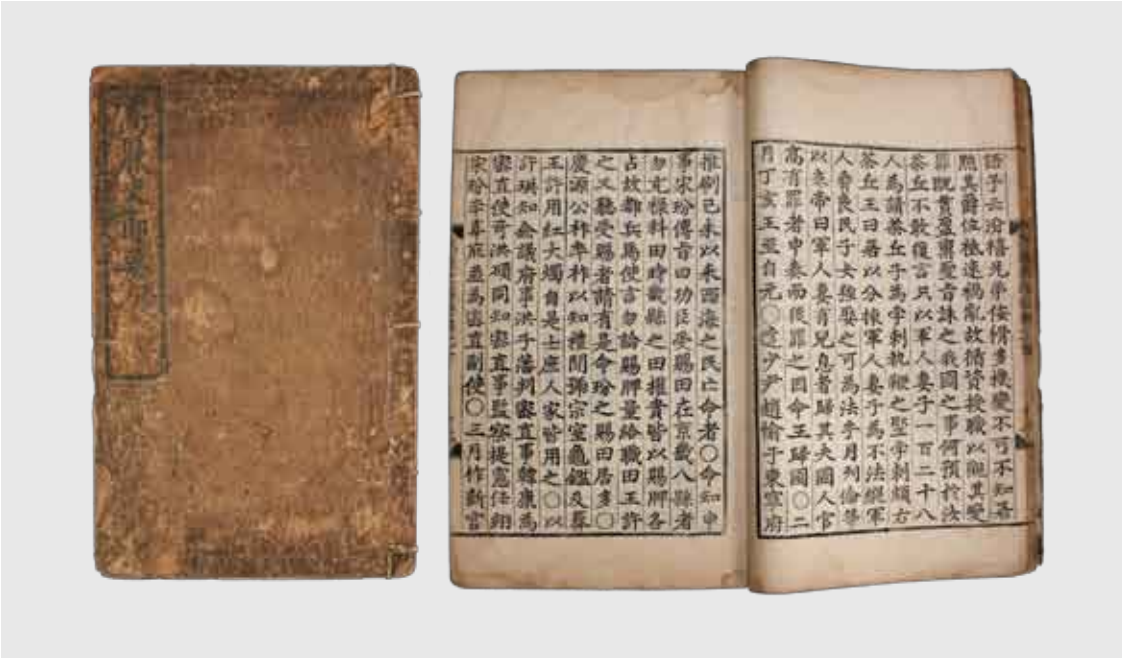 麗史節要
語予云汾禧兄弟佞猾多機變不可不知若
點其爵位極速禍亂故循資授職以觀其變
罪既貫盈聖旨誅之我國之事何預於汝
茶丘不敢復言只以軍人妻子一百二十八
人為請茶丘子為宰刺執鞭之竪宰刺頗右
茶丘王曰若以分揀軍人妻子為不法縱軍
人奪良民子女強娶之可為法乎月列倫等
以奏帝曰軍人妻有兒息者歸其夫國人官
高有罪者申奏而後罪之因令王歸國〇二
月丁亥王至自元〇遣少尹趙愉于東寧府
推刷已未以來西海之民亡命者〇命知申
事宋玢傳旨曰功臣受賜田在京畿八縣者
勿充祿科田時畿縣之田權貴皆以賜牌各
占故都兵馬使言勿論賜牌量給職田王許
之又聽受賜者請有是命玢之賜田居多〇
慶源公祚卒祚以知禮聞宗室龜鑑及葬
王許用紅大燭自是士庶人家皆用之〇以
許珙知僉議府事洪子藩判密直事韓康為
密直使奇洪碩同知密直事監察提憲任翊
宋玢李尊庇並為密直副使〇三月作新宮